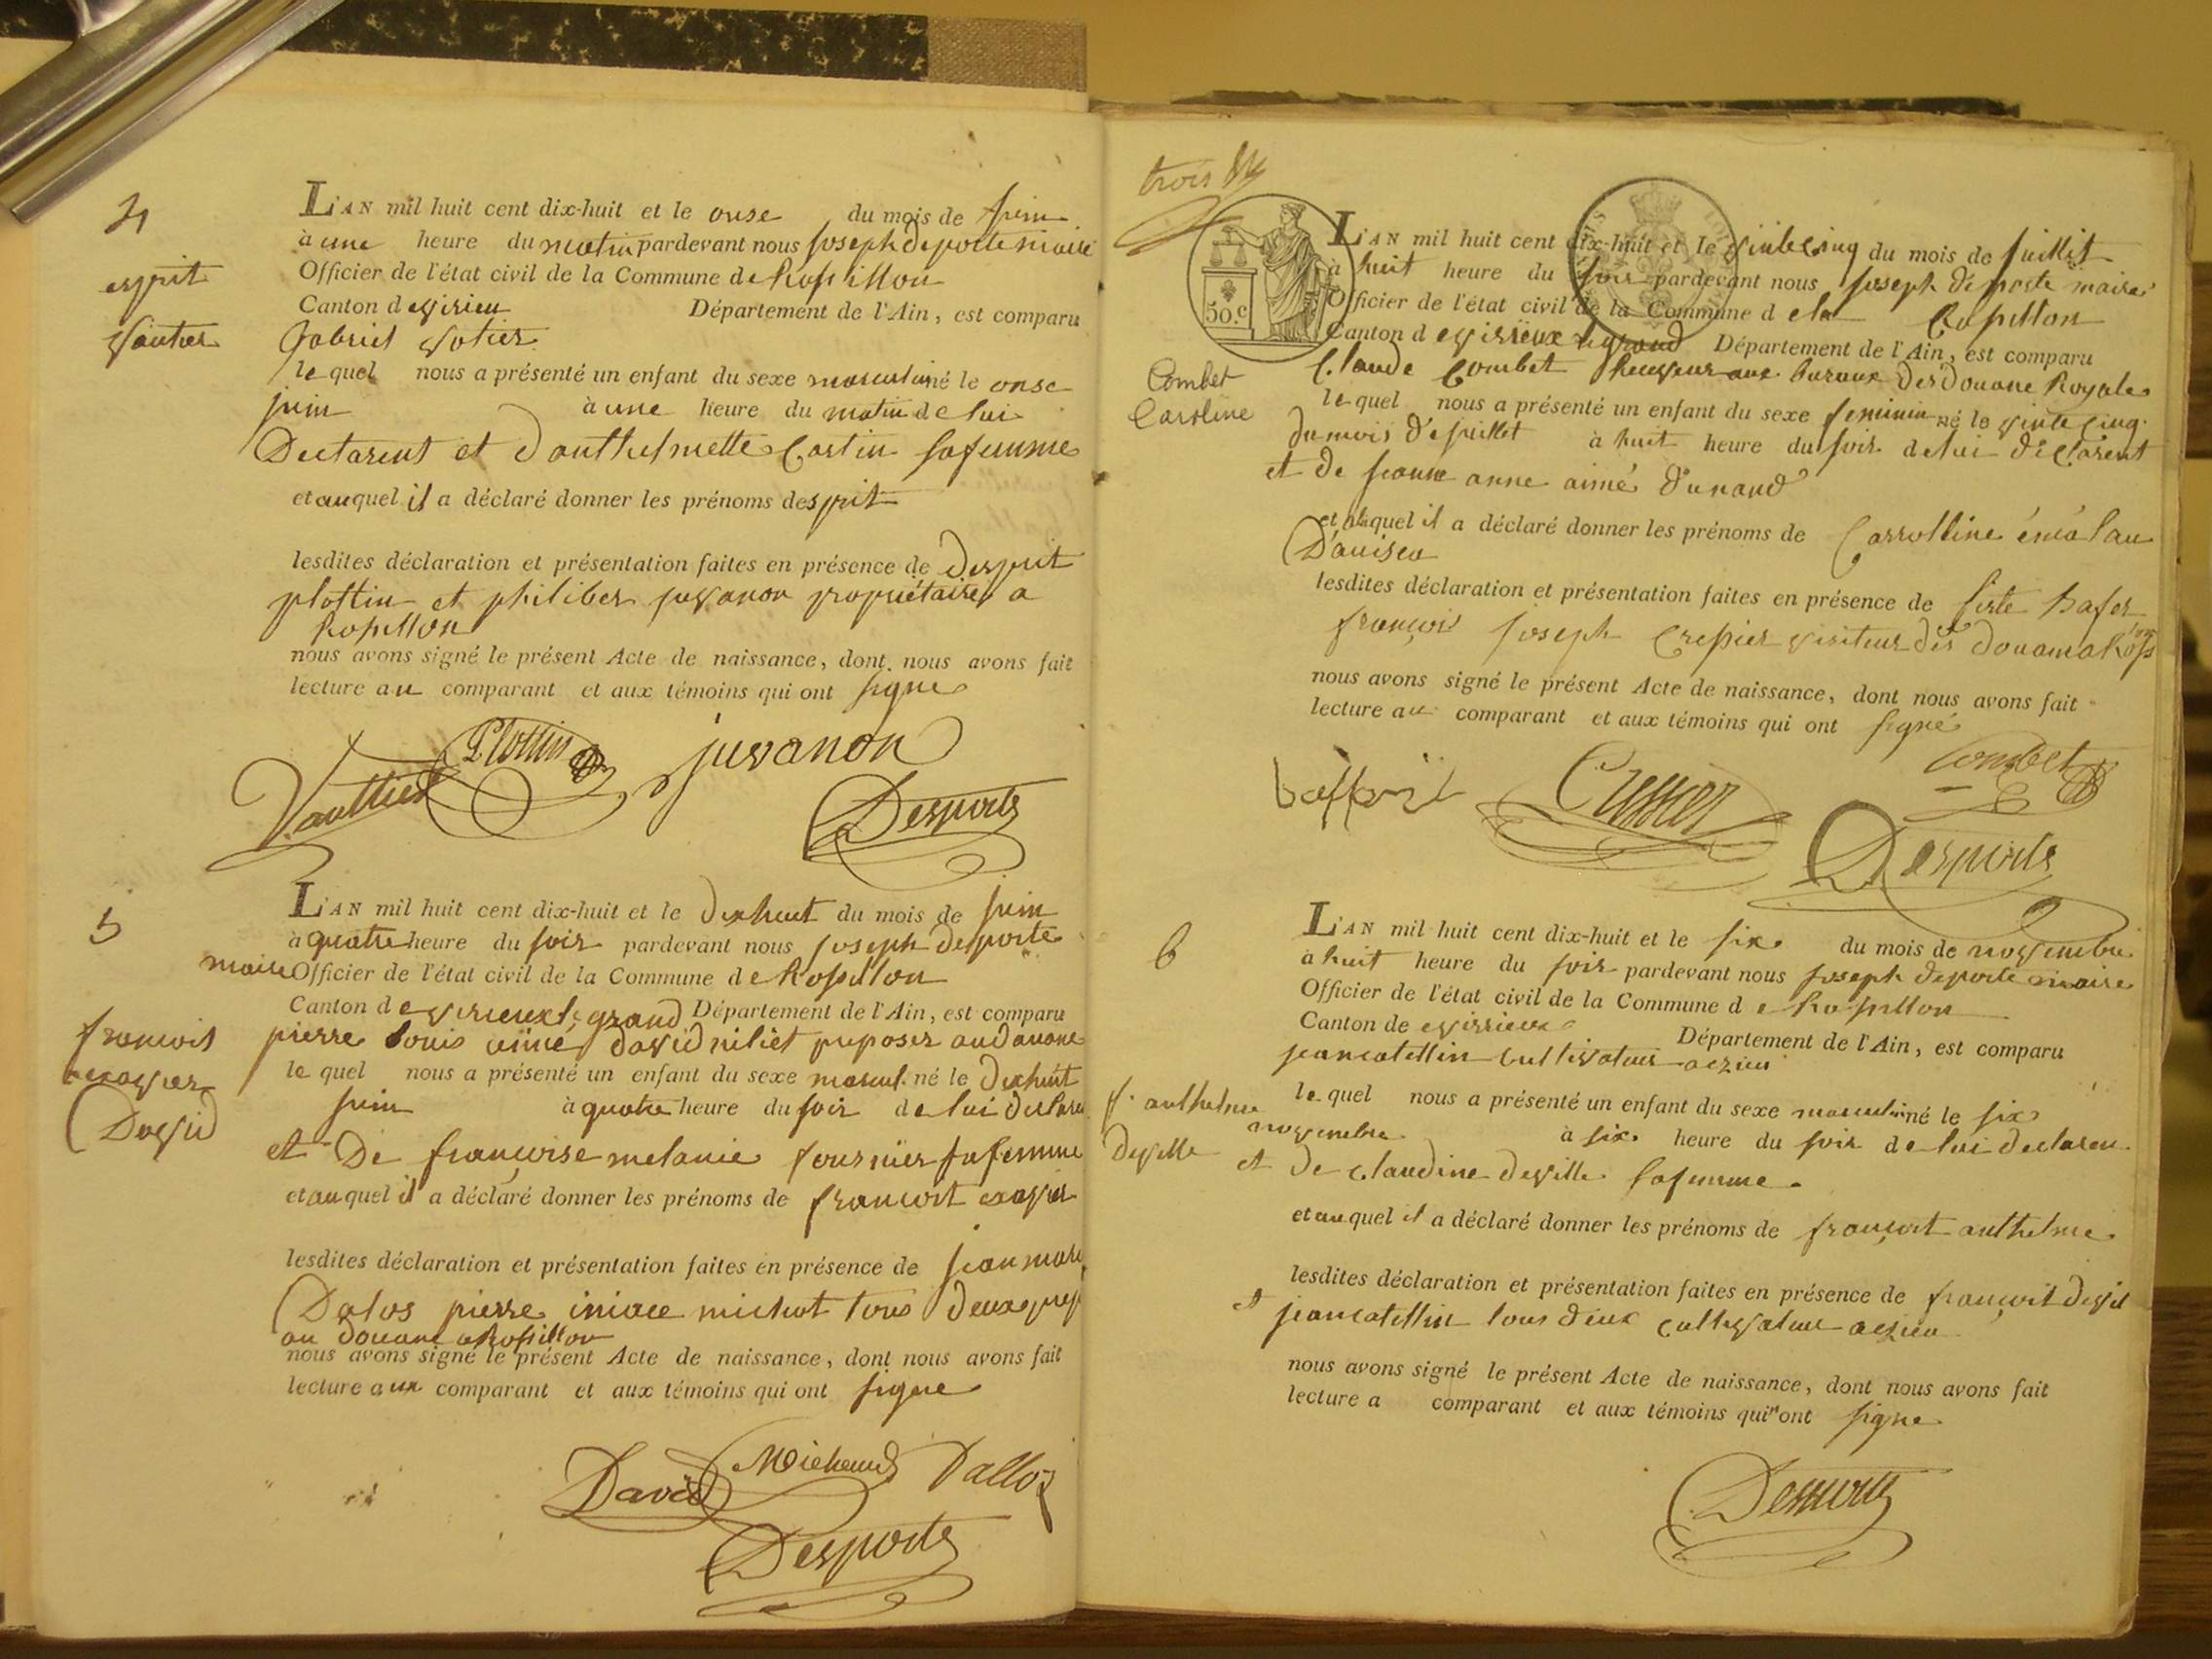 4
esprit
Vautier
L'AN mil huit cent dix-huit et le onse du mois de juin
à une heure du matin pardevant nous joseph deporte maire
Officier de l'état civil de la Commune de Rossillon
Canton de virieu Département de l'Ain, est comparu
Gabriel votier
le quel nous a présenté un enfant du sexe masculin né le onse
juin à une heure du matin de lui
Declarent et d'anthelmette Cartin sa femme
et auquel il a déclaré donner les prénoms desprit
lesdites déclaration et présentation faites en présence de Desprit
plottin et philiber juvanon propriétaire a
Rossillon
nous avons signé le présent Acte de naissance, dont nous avons fait
lecture au comparant et aux témoins qui ont signe
Plottin juvanon
Vauttier
Desporte
5
françois
exavier
David
L'AN mil huit cent dix-huit et le dixhuit du mois de juin
à quatre heure du soir pardevant nous joseph desporte
maire Officier de l'état civil de la Commune de Rossillon
Canton de virieux le grand Département de l'Ain, est comparu
pierre louis aimé david preposer au douane
le quel nous a présenté un enfant du sexe mascul. né le dixhuit
juin à quatre heure du soir de lui declare
et De françoise melanie fournier sa femme
et auquel il a déclaré donner les prénoms de françoit exavier
lesdites déclaration et présentation faites en présence de jean marie
Dalos pierre michot tous deux prep
au douane a Rossillon
nous avons signé le présent Acte de naissance, dont nous avons fait
lecture aux comparant et aux témoins qui ont signe
Michaud Dalloz
David
Desporte
trois
50.c
Combet
Caroline
L'AN mil huit cent dix-huit et le vintecinq du mois de juillit
à huit heure du soir pardevant nous joseph deporte maire
Officier de l'état civil de la Commune d ela Rossillon
Canton de virieux legrand Département de l'Ain, est comparu
Claude Combet Receveur aux buraux des douane Royales
le quel nous a présenté un enfant du sexe feminin né le vintecinq
du mois de juillet à huit heure du soir de lui déclarent
et de jeanne anne aimé dunand
et auquel il a déclaré donner les prénoms de Carrolline
lesdites déclaration et présentation faites en présence de
françois joseph Cressier visiteur des douane a Ross
nous avons signé le présent Acte de naissance, dont nous avons fait
lecture au comparant et aux témoins qui ont signé
Combet
Cressier
Desporte
6
f. anthelme
Deville
L'AN mil huit cent dix-huit et le six du mois de novembre
à huit heure du soir pardevant nous joseph deporte maire
Officier de l'état civil de la Commune de Rossillon
Canton de virrieux Département de l'Ain, est comparu
jean catellin cultivateur
le quel nous a présenté un enfant du sexe masculin né le six
novembre à six heure du soir de lui declaren
et de claudine deville sa femme
et auquel il a déclaré donner les prénoms de françoit anthelme
lesdites déclaration et présentation faites en présence de françoit devil
et jean catellin tous deux cultivateur
nous avons signé le présent Acte de naissance, dont nous avons fait
lecture a comparant et aux témoins qui ont signe
Desporte